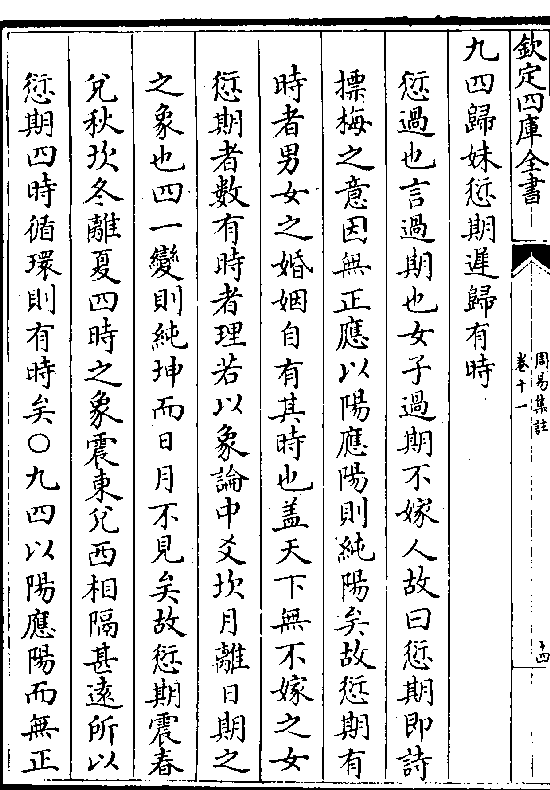 欽定四庫全書
周易集註
卷十一
十四
九四歸妹愆期遲歸有時
愆過也言過期也女子過期不嫁人故曰愆期即詩
摽梅之意因無正應以陽應陽則純陽矣故愆期有
時者男女之婚姻自有其時也盖天下無不嫁之女
愆期者數有時者理若以象論中爻坎月離日期之
之象也四一變則純坤而日月不見矣故愆期震春
兌秋坎冬離夏四時之象震東兌西相隔甚遠所以
愆期四時循環則有時矣○九四以陽應陽而無正